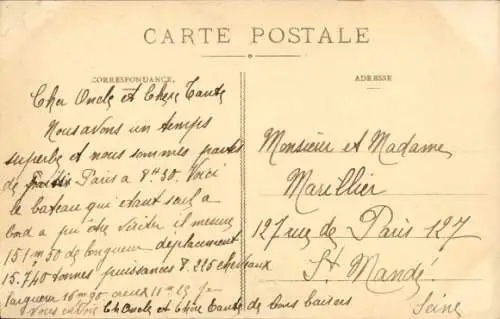 CARTE POSTALE
CORRESPONDANCE
ADRESSE
Cher Oncle et Chère Tante
Nous avons un temps
superbe et nous sommes partis
de Paris a 8h30. Voici
le bateau qui étant seul a
a pu être visiter il mesure
151m50 de longueur deplacement
15.740 tonnes puissances 8.226 chevaux
Largueur 16m90 creux 11m
Cher Oncle et Chère Tante de bons baisers
Monsieur et Madame
Marillier
127 rue de Paris 127
St Mandé
Seine